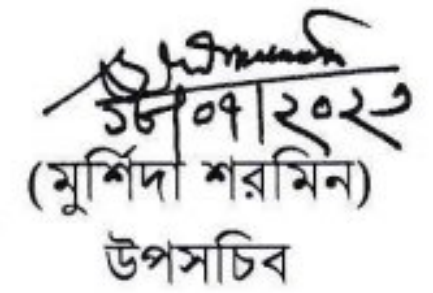 ১৮|০৭|২০২৩
(মুর্শিদা শরমিন)
উপসচিব